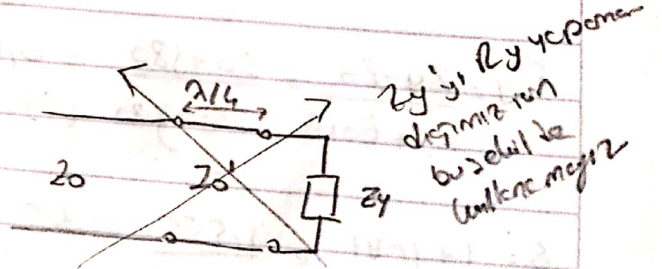 λ/4
Z0
Z0'
Zy
Zy'yi Ry yapama
dığımız için
bu şekilde
kullanamayız